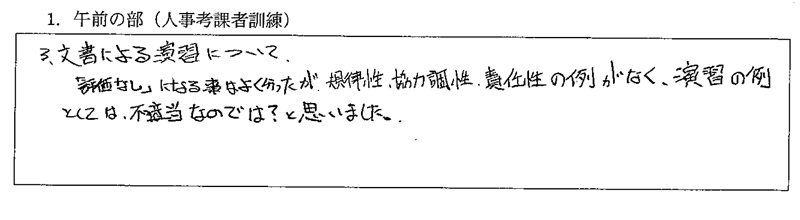 1. 午前の部（人事考課者訓練）
3、文書による演習について、
「評価なし」になる事はよく分ったが、規律性、協力調性、責任性の例がなく、演習の例
としては、不適当なのでは？と思いました。